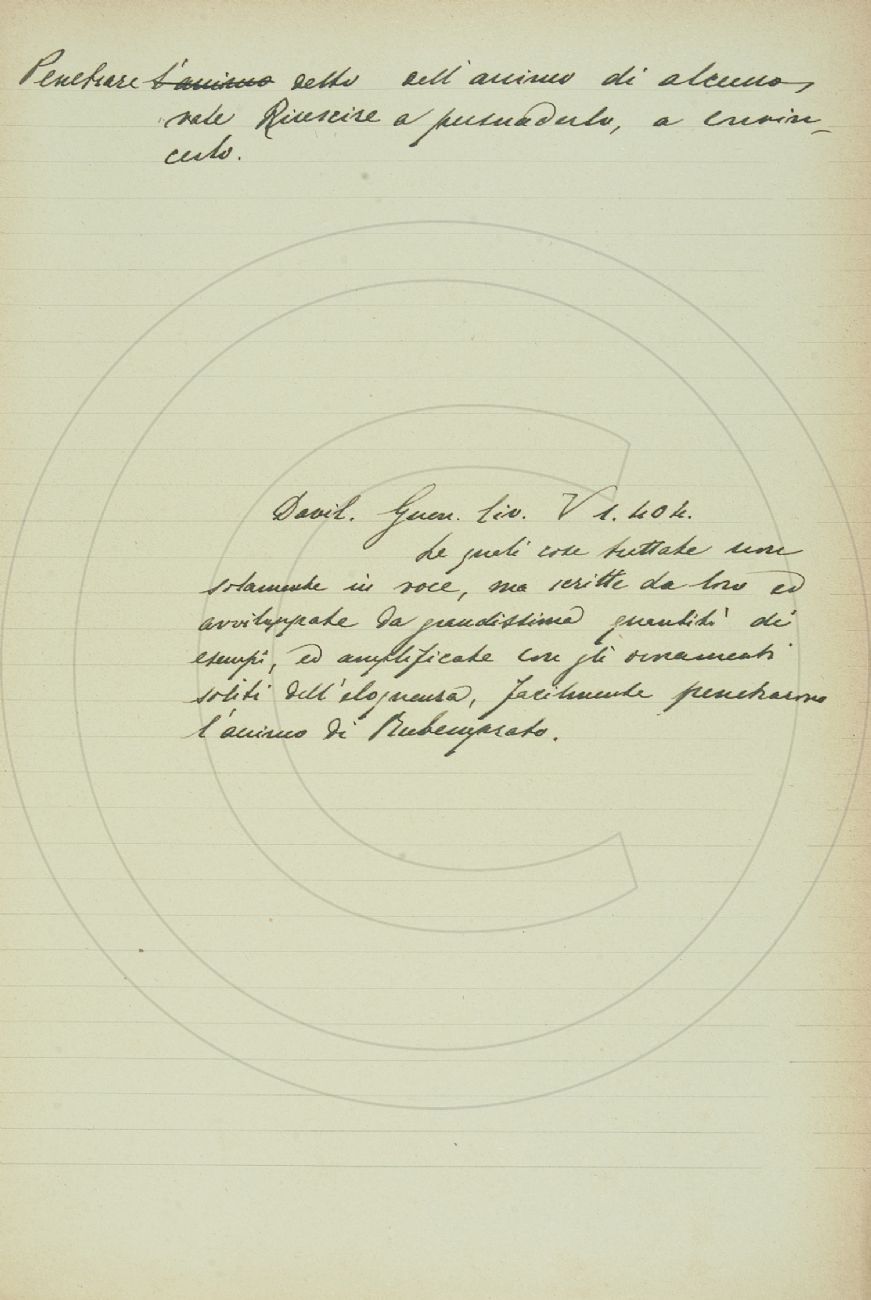 Penetrare l'animo detto dell'animo di alcuno,
vale Riuscire a persuaderlo, a convin-
cerlo.
Davil. Guer. civ. V 1. 404.
Le quali cose trattate non
solamente in voce, ma scritte da loro ed
avviluppate da grandissima quantità di
esempi, ed amplificate con gli ornamenti
soliti dell'eloquenza, facilmente penetrarono
l'animo di Rubemprato.